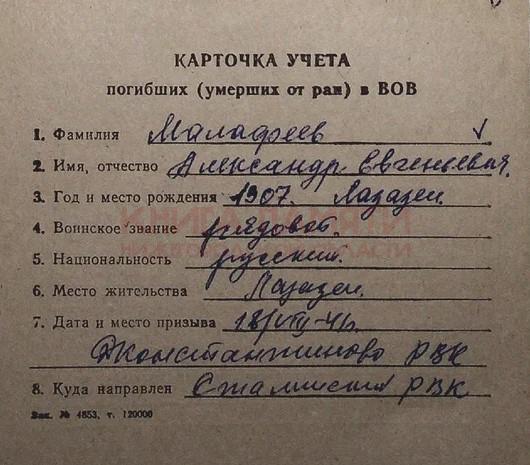 КАРТОЧКА УЧЕТА
погибших (умерших от ран) в ВОВ
1. Фамилия Малафеев
2. Имя, отчество Александр Евгеньевич.
3. Год и место рождения 1907. Лазазеи.
КНИГА ПАМЯТИ
4. Воинское звание рядовой.
НИЖЕГОРОДСКОЙ ОБЛАСТИ
5. Национальность русский.
6. Место жительства Лазазеи.
7. Дата и место призыва
Константиново РВК
8. Куда направлен Сталинский РВК
Зак. № 4853, т. 120000